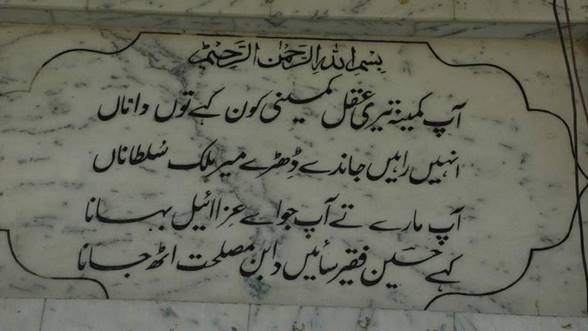 بسم اللہ الرحمٰن الرحیم
آپ کمینہ تیری عقل کمینی کون کہے توں داناں
انہیں راہیں جاندے ڈِھڑے میر ملک سُلطاناں
آپ مارے تے آپ جواے عزرائیل بہانا
کہے حسین فقیر سائیں دا بن مصلحت اٹھ جانا